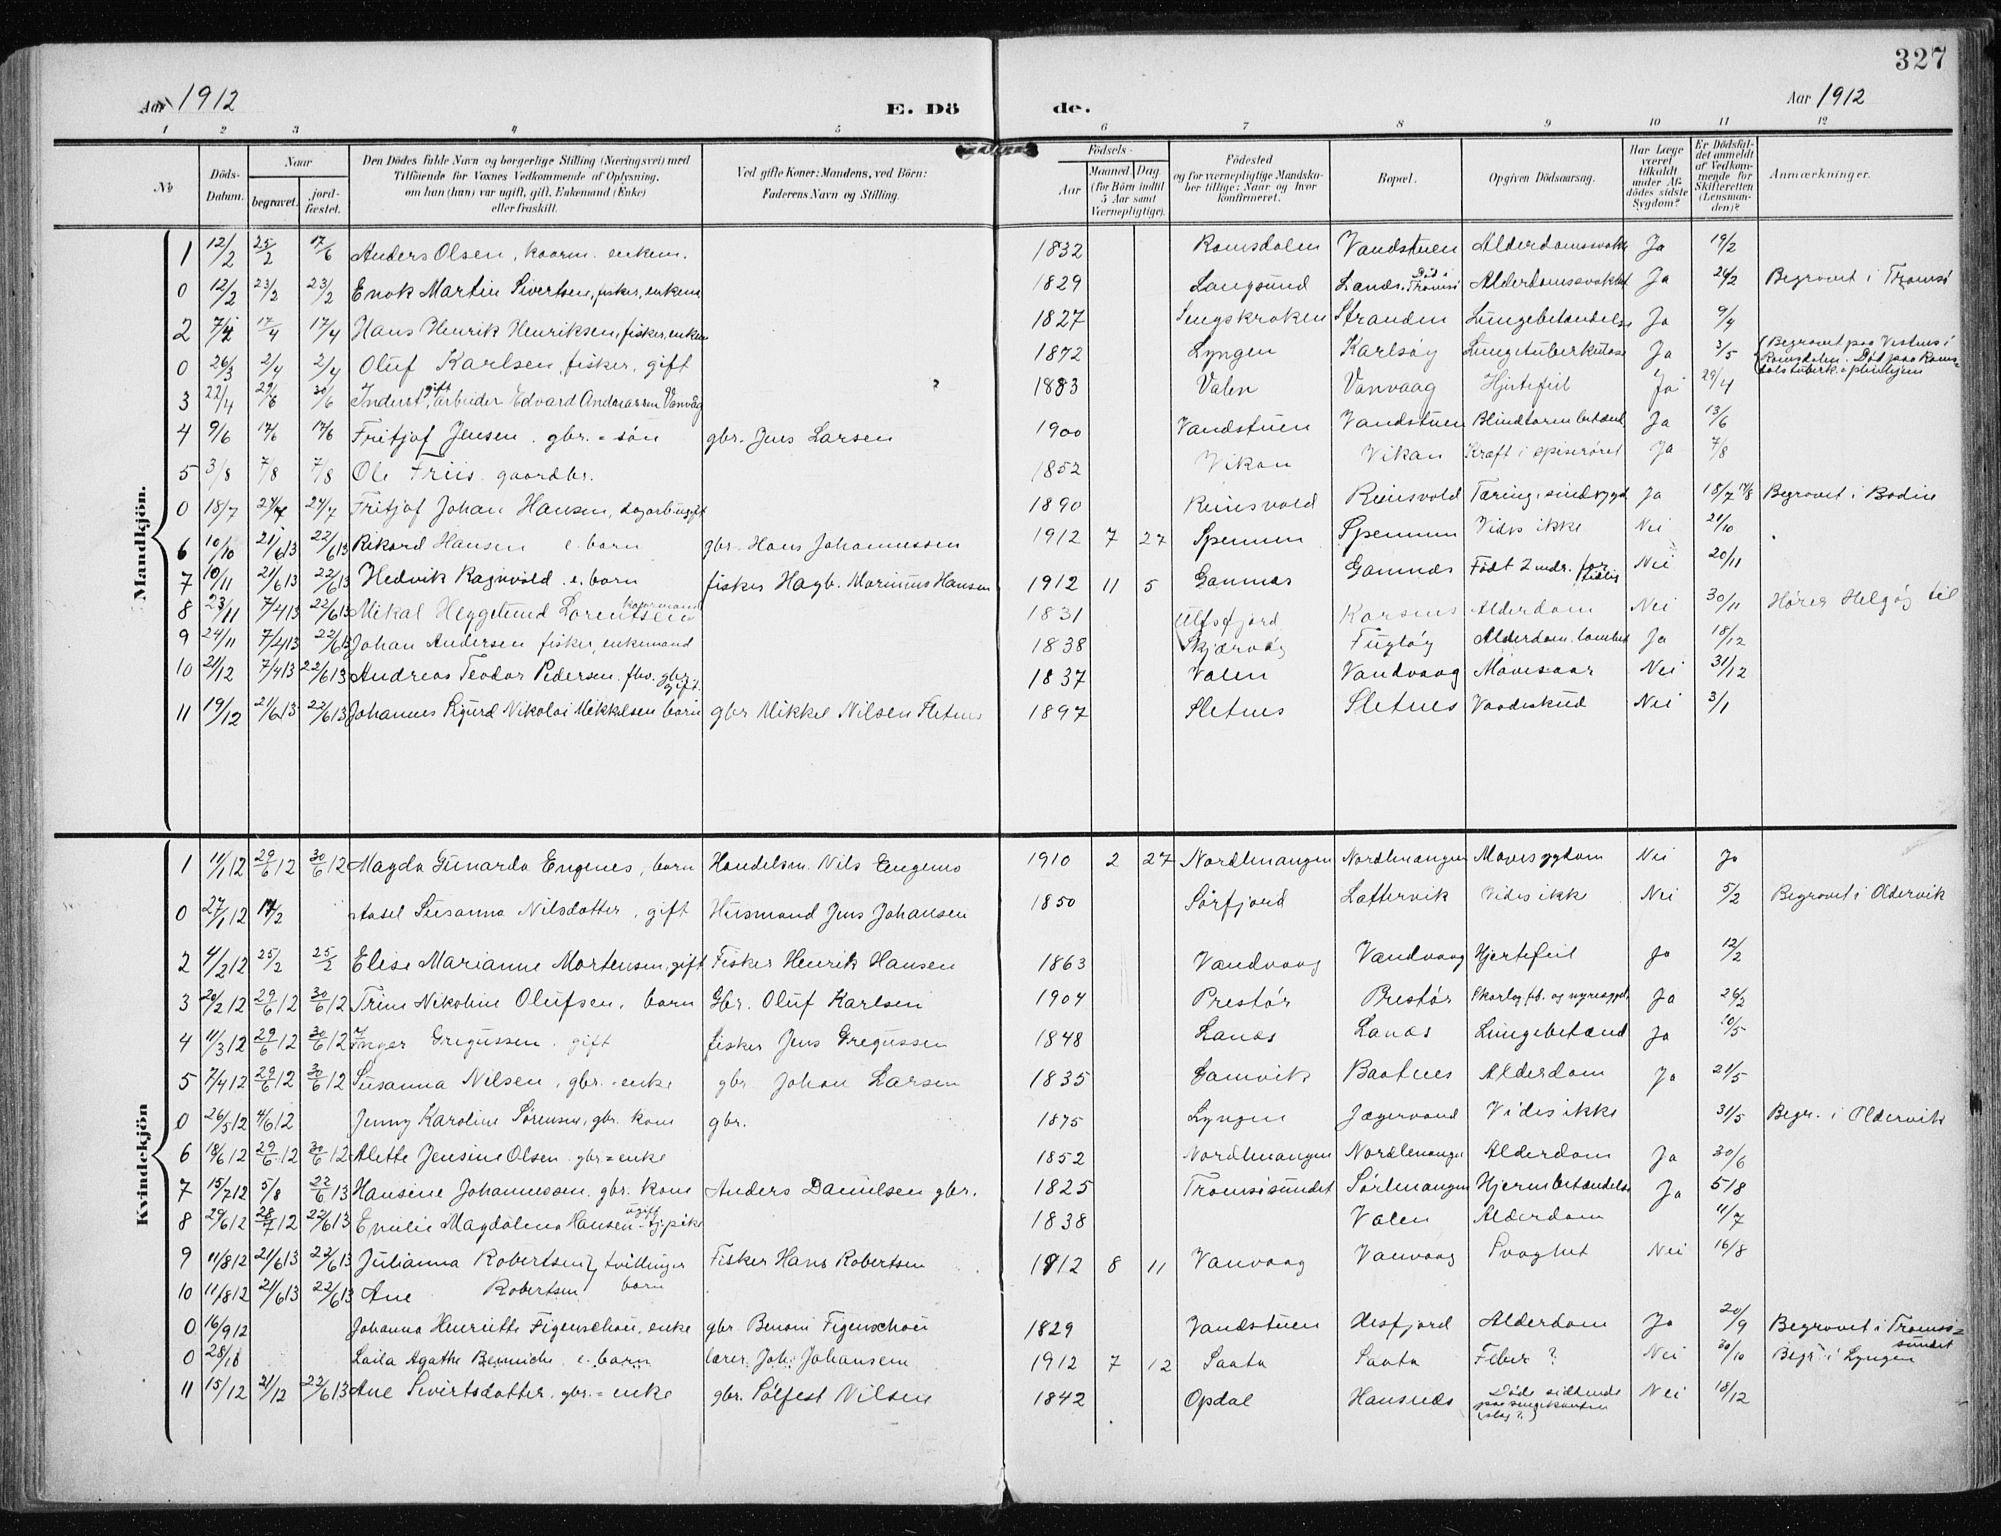 327
Aar 1912 E. Dö de. Aar 1912
1 2 3 4 5 6 7 8 9 10 11 12
No Döds-Datum. Naar begravet. jord-fæstet. Den Dödes fulde Navn og borgerlige Stilling (Næringsvei) med Tilföiende for Voxnes Vedkommende af Oplysning, om han (hun) var ugift, gift, Enkemand (Enke) eller fraskilt. Ved gifte Koner: Mandens, ved Börn: Faderens Navn og Stilling. Födsels- Aar Maaned Dag (for Börn indtil 5 Aar samt Værnepligtige). Födested og for værnepligtige Mandska-ber tillige: Naar og hvor konfirmeret. Bopæl. Opgiven Dödsaarsag. Har Læge været tilkaldt under Af-dödes sidste Sygdom? Er Dödsfal-det anmeldt af Vedkom-mende for Skifteretten (Lensman-den)? Anmærkninger.
Mandkjön.
1 12/2 25/2 17/6 Anders Olsen, kaarm. enkem. 1832 Romsdalen Vandstuen Alderdomssvakh Ja 19/2
0 12/2 23/2 23/2 Enok Martin Sivertsen, fisker, enkem 1829 Langsund Lanes. Död i Tromsö Alderdomssvakhet Ja 24/2 Begravet i Tromsö
2 7/4 17/4 17/4 Hans Henrik Henriksen, fisker, enkem 1827 Sengskroken Stranden Lungebetændelse Ja 9/4
0 26/3 2/4 2/4 Oluf Karlsen, fisker, gift 1872 Lyngen Karlsöy Lungetuberkulose Ja 3/5 (Begravet paa Vestnes i Romsdalen. Död paa Roms-dals tuberk.a.pleiehjem
3 22/4 29/6 30/6 Inderst, gift arbeider Edvard Andreassen Vanvåg 1883 Valen Vanvaag Hjertefeil Ja 29/4
4 9/6 17/6 17/6 Fritjof Jensen. gbr. = sön gbr. Jens Larsen 1900 Vandstuen Vandstuen Blindtarmbetænd Ja 13/6
5 3/8 7/8 7/8 Ole Friis. gaardbr. 1852 Vikan Vikan Kræft i spiseröret Ja 7/8
0 18/7 24/7 24/7 Fritjof Johan Hansen, dagarb ugift 1890 Reinsvold Reinsvold Tæring, sindssygd Ja 18/7 Begravet i Bodin
6 10/10 21/6 13 22/6 13 Rikard Hansen e. barn gbr. Hans Johannessen 1912 7 27 Spennen Spennen Vides ikke Nei 21/10
7 10/11 21/6 13 22/6 13 Hedvik Ragnvald. e. barn fisker Hagb. Marinius Hansen 1912 11 5 Gamnes Gamnes Födt 2 mdr. for tidlig Nei 20/11
8 23/11 7/4 13 22/6 13 Mikal Heggelund Lorentsen kaarmand 1831 Ulfsfjord Karsnes Alderdom Nei 30/11 Hörer Helgöy til
9 24/11 7/4 13 22/6 13 Johan Andersen fisker, enkemand 1838 Skjærvöy Fuglöy Alderdom. Ja 18/12
10 21/12 7/4 13 22/6 13 Andreas Teodor Pedersen. fhv. gbr. gift. 1837 Valen Vandvaag Mavesaar Nei 31/12
11 19/12 21/6 13 22/6 13 Johannes Sigurd Nikolai Mikkelsen barn gbr Mikkel Nilsen Sletnes 1897 Sletnes Sletnes Vaadeskud Nei 3/1
Kvindekjön
1 11/1 12 29/6 12 30/6 12 Magda Gunarda Engenes, barn Handelsm. Nils Engenes 1910 2 27 Nordlenangen Nordlenangen Mavesygdom Nei Ja
0 27/1 12 17/2 Susanna Nilsdatter, gift Husmand Jens Johansen 1850 Sörfjord Lattervik Vides ikke Nei 5/2 Begravet i Oldervik
2 4/2 12 25/2 25/2 Elise Marianne Mortensen, gift Fisker Henrik Hansen 1863 Vandvaag Vandvaag Hjertefeil Ja 12/2
3 20/2 12 29/6 12 30/6 12 Trine Nikoline Olufsen, barn Gbr. Oluf Karlsen 1904 Prestör Prestör Skarlag.fb. og nyresygd. Ja 26/2
4 11/3 12 29/6 12 30/6 12 Inger Gregussen. gift fisker Jens Gregussen 1848 Lanes Lanes Lungebetænd Ja 10/5
5 7/4 12 29/6 12 30/6 12 Susanna Nilsen, gbr. = enke gbr. Johan Larsen 1835 Jamvik Baatnes Alderdom Ja 21/5
0 26/5 12 4/6 12 Jenny Karoline Sörensen, gbr. kone gbr. 1875 Lyngen Jægervand Vides ikke 31/5 Begr. i Oldervik
6 18/6 12 29/6 12 30/6 12 Alette Jensine Olsen. gbr = enke 1852 Nordlenangen Nordlenangen Alderdom Ja 30/6
7 15/7 12 5/8 22/6 13 Hansine Johannessen. gbr. kone Anders Danielsen gbr. 1825 Tromsösundet Sörlenangen Hjernebetændelse Ja 5/8
8 29/6 12 28/7 12 22/6 13 Emilie Magdalena Hansen ugift tj.pike 1838 Valen Alderdom 11/7
9 11/8 12 21/6 13 22/6 13 Julianna Robertsen } tvillinger Fisker Hans Robertsen 1912 8 11 Vanvaag Vanvaag Svaghet Nei 16/8
10 11/8 12 21/6 13 22/6 13 Ane Robertsen barn
0 16/9 12 Johanna Henriette Figenschou, enke gbr. Benoni Figenschou 1829 Vandstuen Hesfjord Alderdom Ja 20/9 Begravet i Tromsö=sundet
0 28/10 Laila Agathe e. barn lærer Joh. Johansen 1912 7 12 Saata Saata Feber ? Nei 30/10 Begr. i Lyngen
11 15/12 21/12 22/6 13 Ane Sivertsdatter. gbr. = enke gbr. Sölfest Nilsen 1842 Opdal Hansnes Döde siddende paa sengekanten (slag?) Nei 18/12